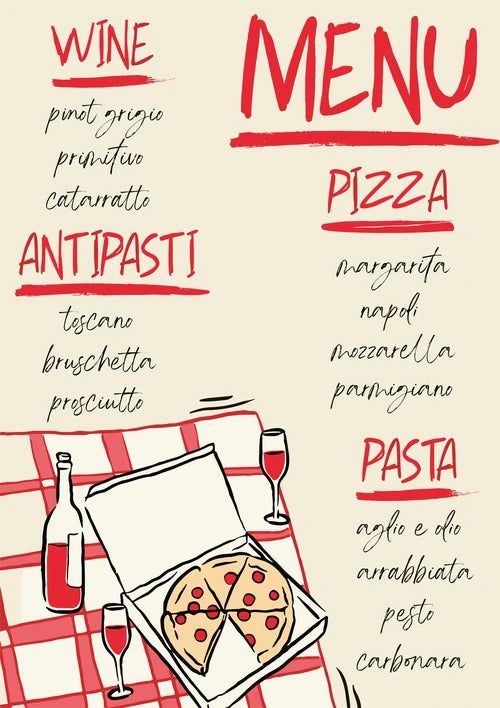 MENU
WINE
pinot grigio
primitivo
catarratto
ANTIPASTI
toscano
bruschetta
prosciutto
PIZZA
margarita
napoli
mozzarella
parmigiano
PASTA
aglio e olio
arrabbiata
pesto
carbonara